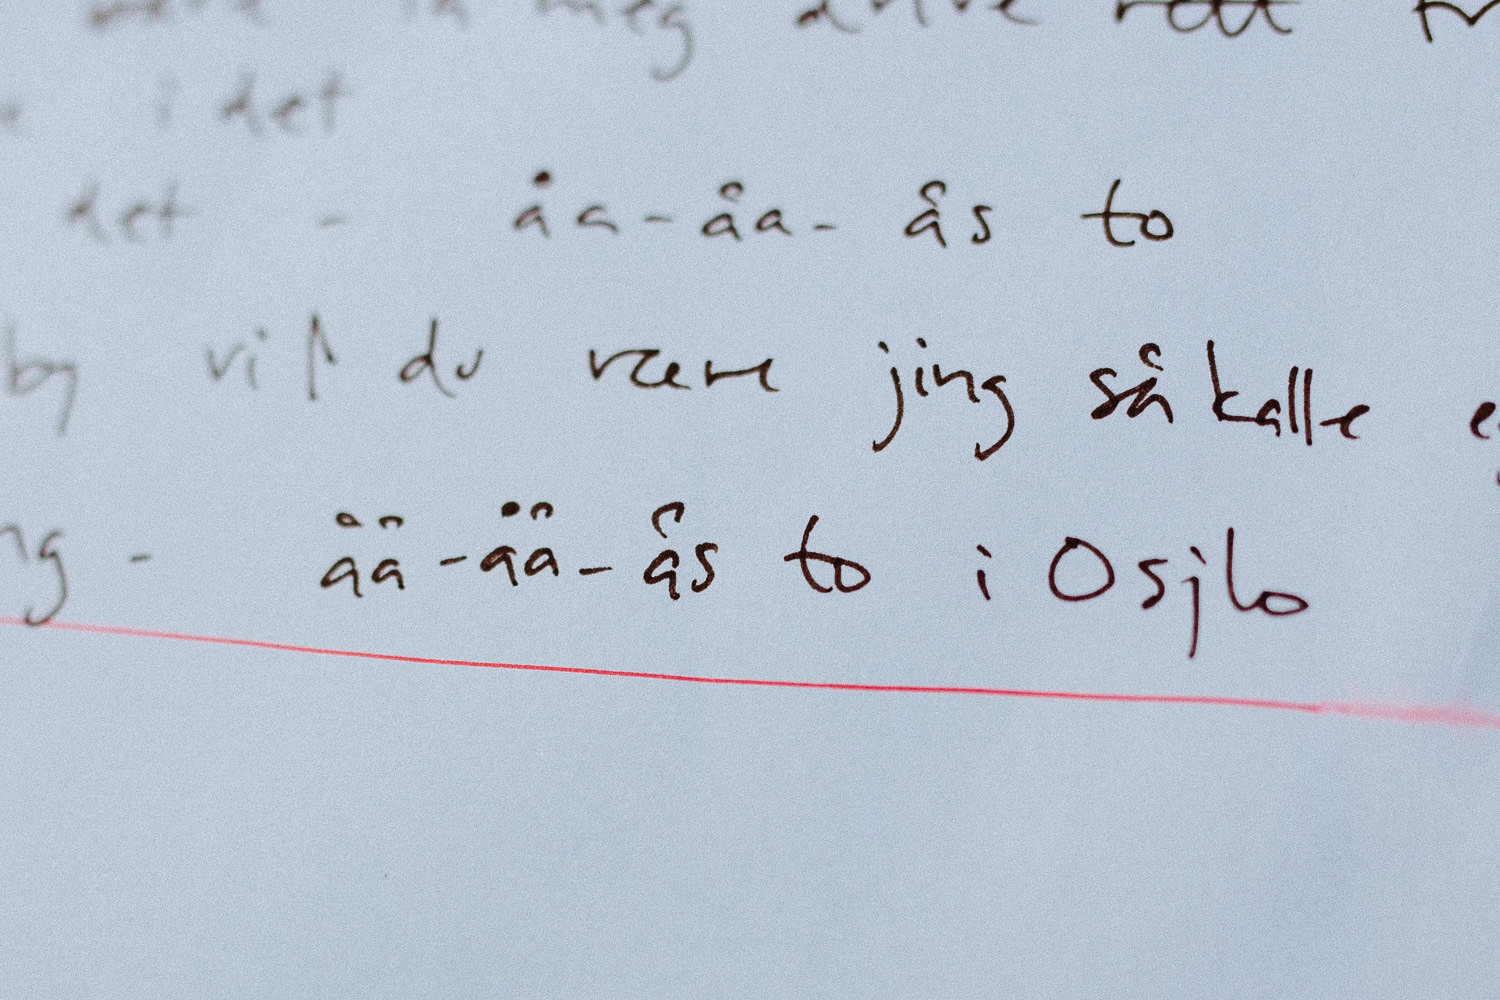 meg rett
i det
det - åa-åa- ås to
by vil du være jing så kalle
ng - åå-åå-ås to i Osjlo